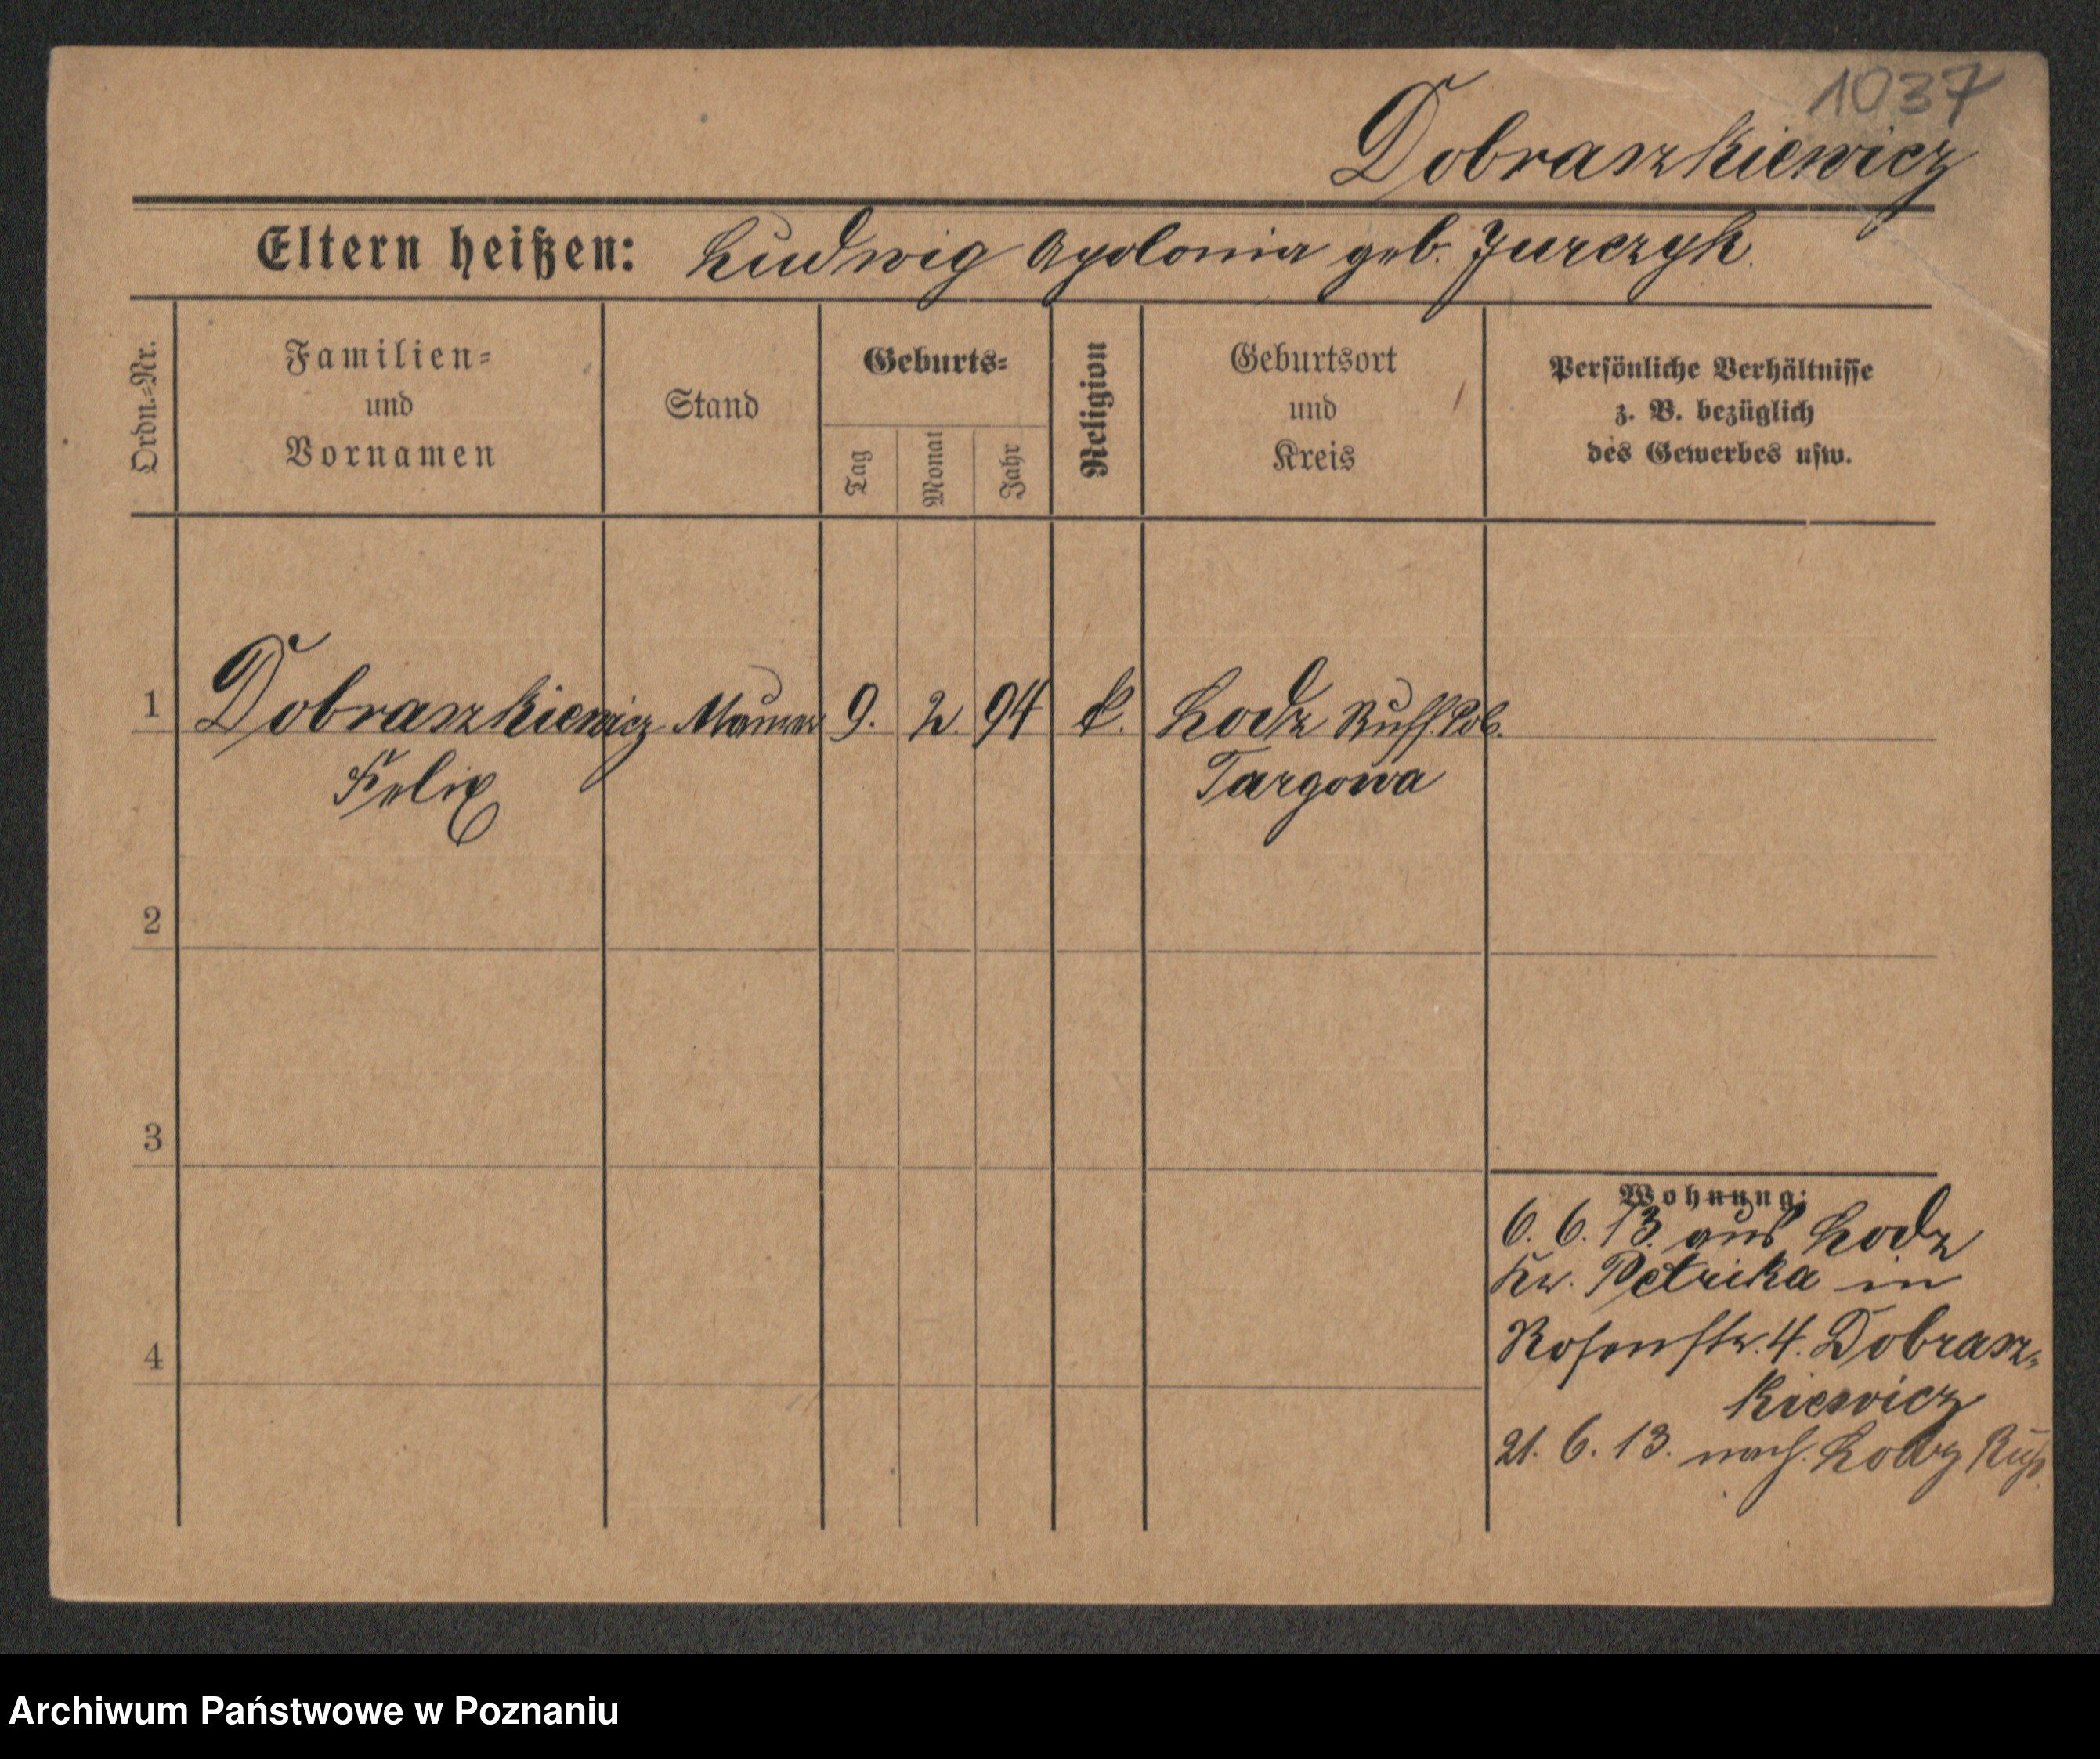 1037
Dobraszkiewicz
Eltern heißen: Ludwig Apolonia geb. Jurczyk.
Ordn.=Nr.
Familien=
und
Vornamen
Stand
Geburts=
Tag
Monat
Jahr
Religion
Geburtsort
und
Kreis
Persönliche Verhältnisse
z. B. bezüglich
des Gewerbes usw.
1 Dobraszkiewicz Maurer 9. 2. 94 k. Lodz Russ. Pol.
Felix Targowa
2
3
4
Wohnung:
6. 6. 13. aus Lodz
Kr. Petrika in
Rosenstr. 4. Dobrasz=
kiewicz
21. 6. 13. nach Russ.
Archiwum Państwowe w Poznaniu